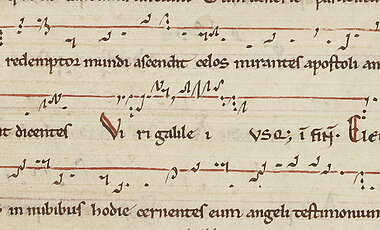 redemptor mundi ascendit celos mirantes apostoli an
t dicentes Vi ri galile i usq; i fine. Ele
in nubibus hodie cernentes eum angeli testimonium